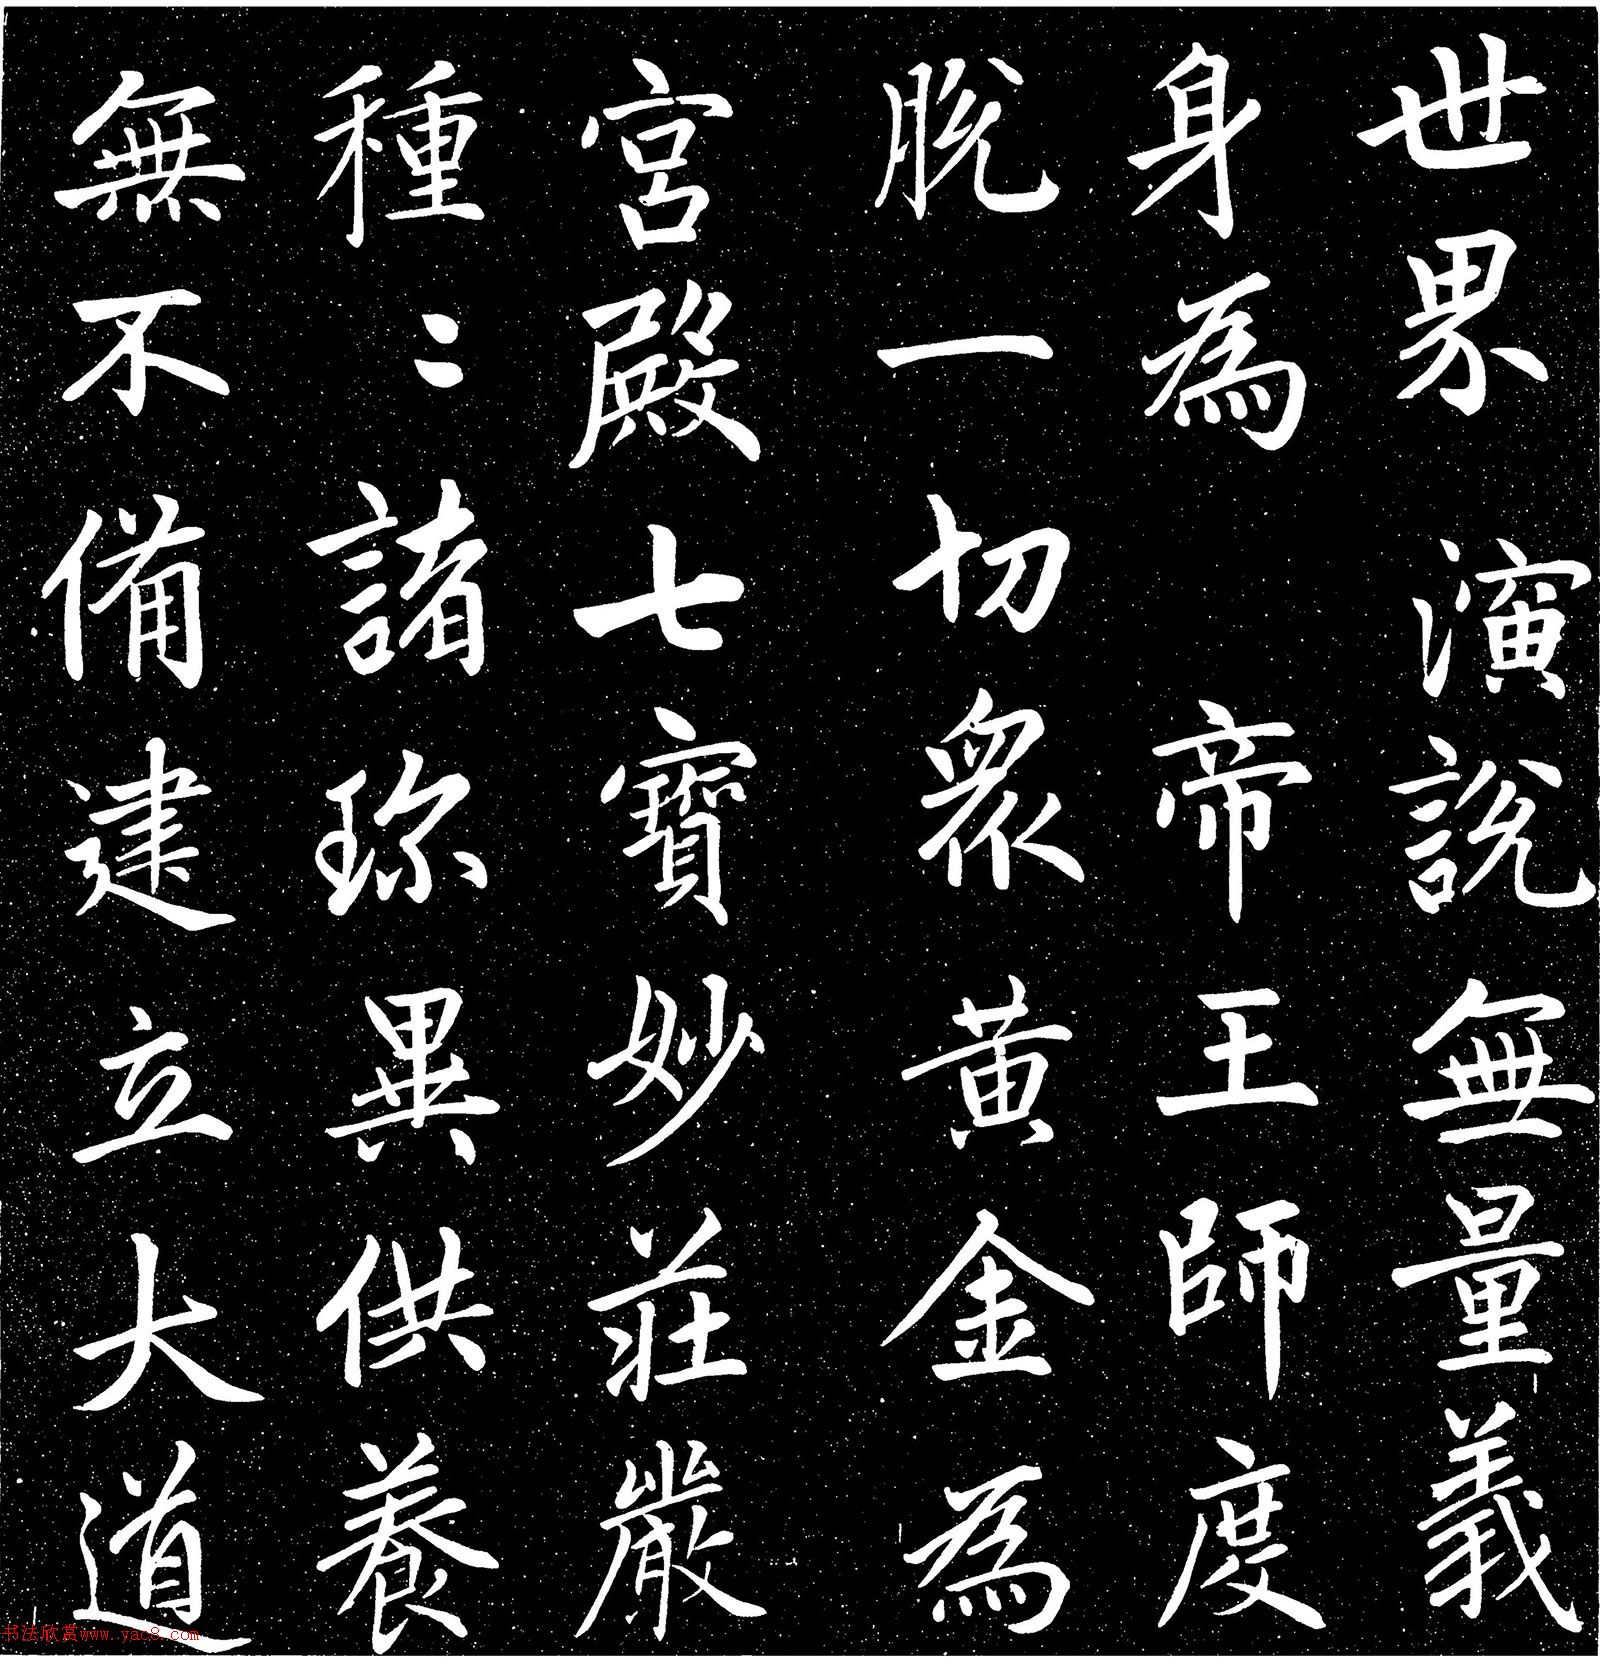 世界演說無量義
身為帝王師度
脫一切眾黃金為
宮殿七寶妙莊嚴
種〻諸珎異供養
無不備建立大道
书法欣赏www.yac8.com